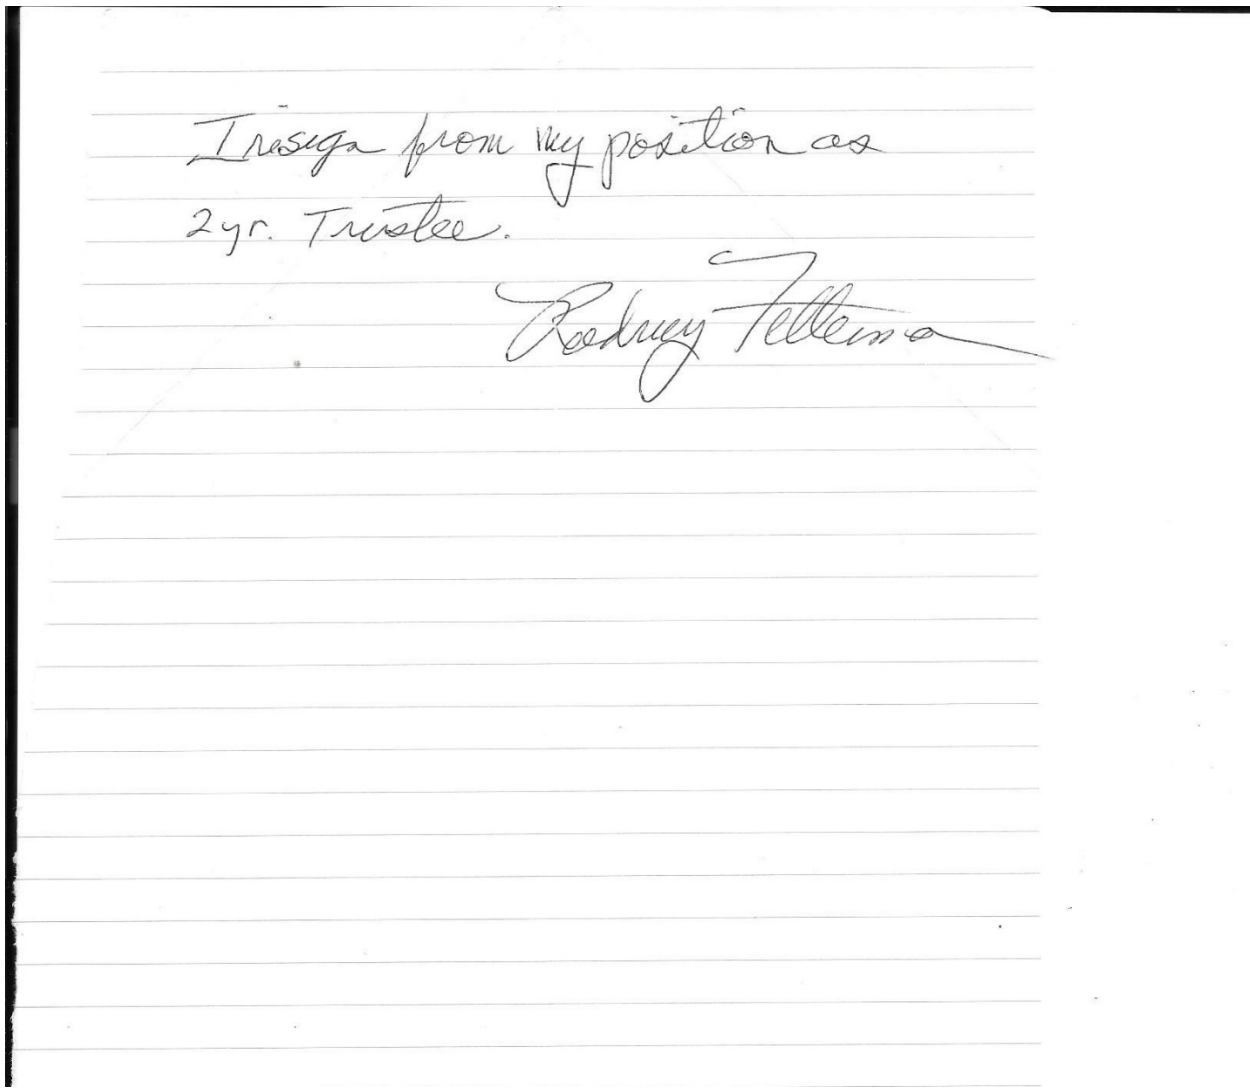 I resign from my position as
2 yr. Trustee.
Rodney